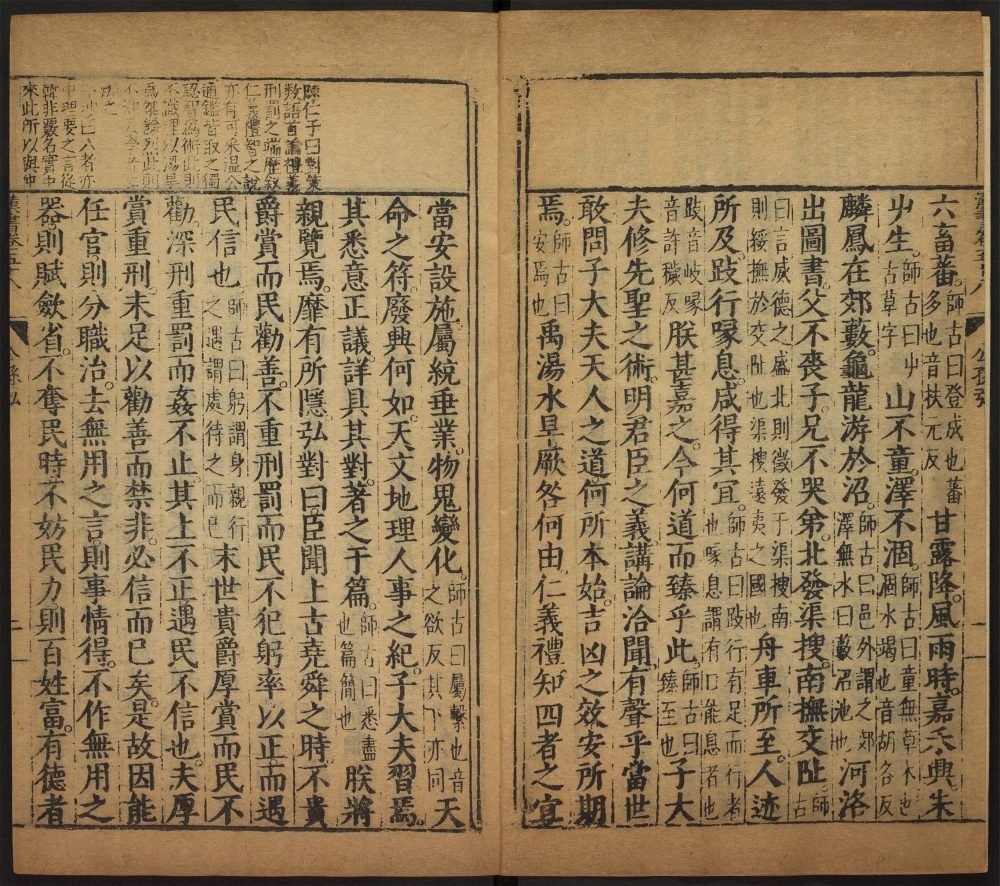 六畜蕃師古曰登成也蕃多也音扶元反甘露降風雨時嘉禾興朱
屮生師古曰屮古草字山不童澤不涸師古曰童無草木也涸水竭也音胡各反
麟鳳在郊藪龜龍游於沼師古曰邑外謂之郊澤無水曰藪沼池也河洛
出圖書父不喪子兄不哭弟北發渠搜南撫交阯師古
曰言威德之盛北則徵發于渠搜南則綏撫於交阯也渠搜遠夷之國也舟車所至人迹
所及跂行喙息咸得其宜師古曰跂行有足而行者也喙息謂有口能息者也
跂音岐喙音許穢反朕甚嘉之今何道而臻乎此師古曰臻至也子大
夫修先聖之術明君臣之義講論洽聞有聲乎當世
敢問子大夫天人之道何所本始吉凶之效安所期
焉師古曰安焉也禹湯水旱厥咎何由仁義禮知四者之宜
當安設施屬統垂業物鬼變化師古曰屬繫也音之欲反其下亦同天
命之符廢興何如天文地理人事之紀子大夫習焉
其悉意正議詳具其對著之于篇師古曰悉盡也篇簡也朕將
親覽焉靡有所隱弘對曰臣聞上古堯舜之時不貴
爵賞而民勸善不重刑罰而民不犯躬率以正而遇
民信也師古曰躬謂身親行之遇謂處待之而已末世貴爵厚賞而民不
勸深刑重罰而姦不止其上不正遇民不信也夫厚
賞重刑未足以勸善而禁非必信而已矣是故因能
任官則分職治去無用之言則事情得不作無用之
器則賦斂省不奪民時不妨民力則百姓富有德者
仁子曰對策
數語首論禮義
刑罰之端歷敘
仁義禮智之說
亦有可采溫公
通鑑皆取之獨
認智為術此則
不識理以湯旱
為桀餘烈此則
之八者亦
理要之言從
韓非覈名實中
來此所以與